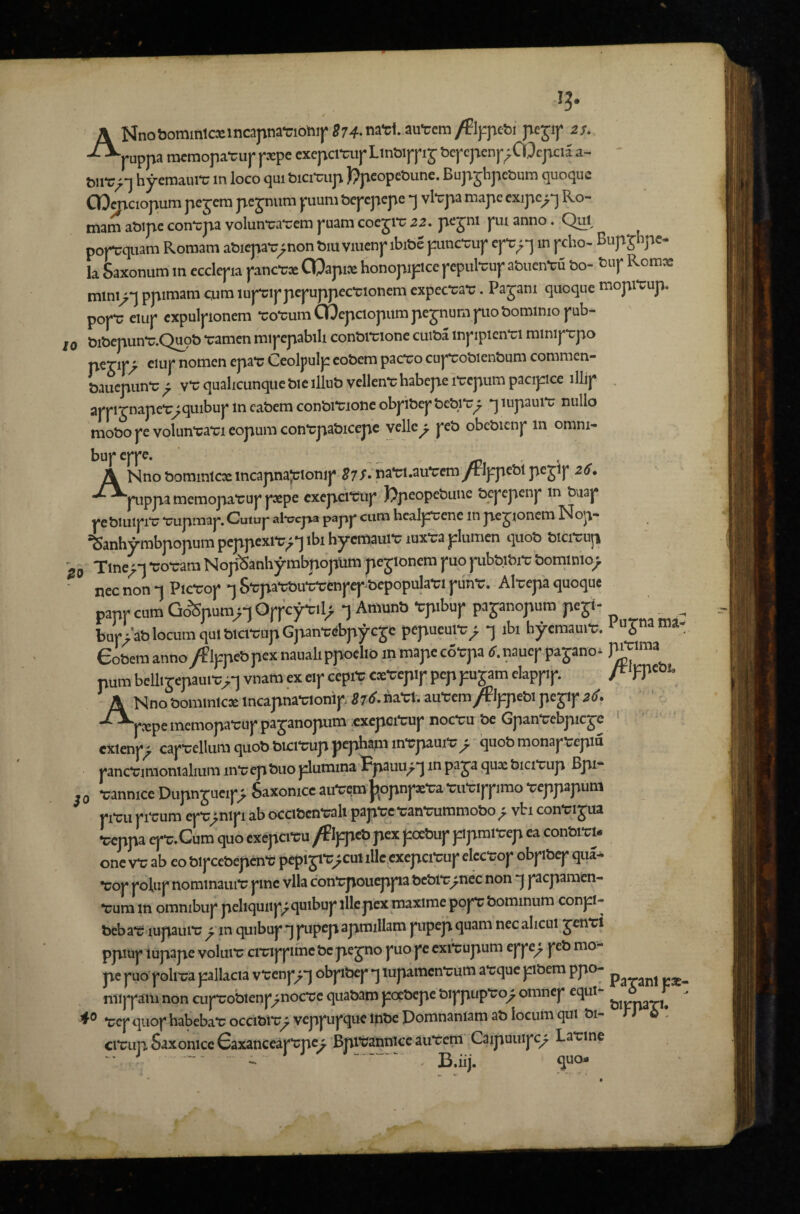 13.
ANno dominicæ incarnationis 874. nati. autem Ælfredi regis 25.
suppa memoratus sæpe exercitus Lindissig deserens; Merciā a-
diit; ⁊ hyemauit in loco qui dicitur Hreopedune. Burghredum quoque
Merciorum regem regnum suum deserere ⁊ vltra mare exire; ⁊ Ro-
mam adire contra voluntatem suam coegit 22. regni sui anno. Qui
postquam Romam adierat; non diu viuens ibidē functus est; ⁊ in scho-
la Saxonum in ecclesia sanctæ Mariæ honorifice sepultus aduentū do-
mini; ⁊ primam cum iustis resuppectionem expectat. Pagani quoque
post eius expulsionem totum Merciorum regnum suo dominio sub-
10 diderunt. Quod tamen miserabili conditione cuidā insipienti ministro
regis; eius nomen erat Ceolpulf eodem pacto custodiendum commen-
dauerunt; vt qualicunque die illud vellent habere iterum pacifice illis
assignaret; quibus in eadem conditione obsides dedit; ⁊ iurauit nullo
modo se voluntati eorum contradicere velle; sed obediens in omni-
bus esse.
Burghre-
dus Romæ
moritur.
ANno dominicæ incarnationis 875. nati. autem Ælfredi regis 26.
suppa memoratus sæpe exercitus Hreopedune deserens in duas
se diuisit turmas. Cuius altera pars cum healftene in regionem Nor-
ðanhymbrorum perrexit; ⁊ ibi hyemauit iuxta flumen quod dicitur
20 Tine; ⁊ totam Norðanhymbrorum regionem suo subdidit dominio;
nec non ⁊ Pictos ⁊ Stratduttenses depopulati sunt. Altera quoque
pars cum Goðrum; ⁊ Osscytil; ⁊ Amund tribus paganorum regi-
bus; ad locum qui dicitur Grantebrycge peruenit; ⁊ ibi hyemauit.
Eodem anno Ælfred rex nauali proelio in mare cōtra 6. naues pagano-
rum belligerauit; ⁊ vnam ex eis cepit cæteris per fugam elapsis.
Pugna ma-
ritima
Ælfredi.
ANno dominicæ incarnationis 876. nati. autem Ælfredi regis 26.
sæpe memoratus paganorum exercitus noctu de Grantebricge
exiens; castellum quod dicitur perham intrauit; quod monasteriū
sanctimonialium inter duo flumina Frauu; ⁊ in paga quæ dicitur Bri-
30 tannice Durngueis; Saxonice autem þornsæta tutissimo terrarum
situ situm est; nisi ab occidentali parte tantummodo; vbi contigua
terra est. Cum quo exercitu Ælfred rex foedus firmiter ea conditi-
one vt ab eo discederent pepigit; cui ille exercitus electos obsides quā-
tos solus nominauit sine vlla controuersia dedit; nec non ⁊ sacramen-
tum in omnibus reliquiis; quibus ille rex maxime post dominum confi-
debat iurauit; in quibus ⁊ super armillam super quam nec alicui genti
prius iurare voluit citissime de regno suo se exiturum esse; sed mo-
re suo solita fallacia vtens; ⁊ obsides ⁊ iuramentum atque fidem pro-
missam non custodiens; nocte quadam foedere disrupto; omnes equi-
40 tes quos habebat occidit; versusque inde Domnaniam ad locum qui di-
citur Saxonice Eaxanceastre; Britannice autem Cairuuisc; Latine
Pagani fæ-
difragi.
B.iij. quo-